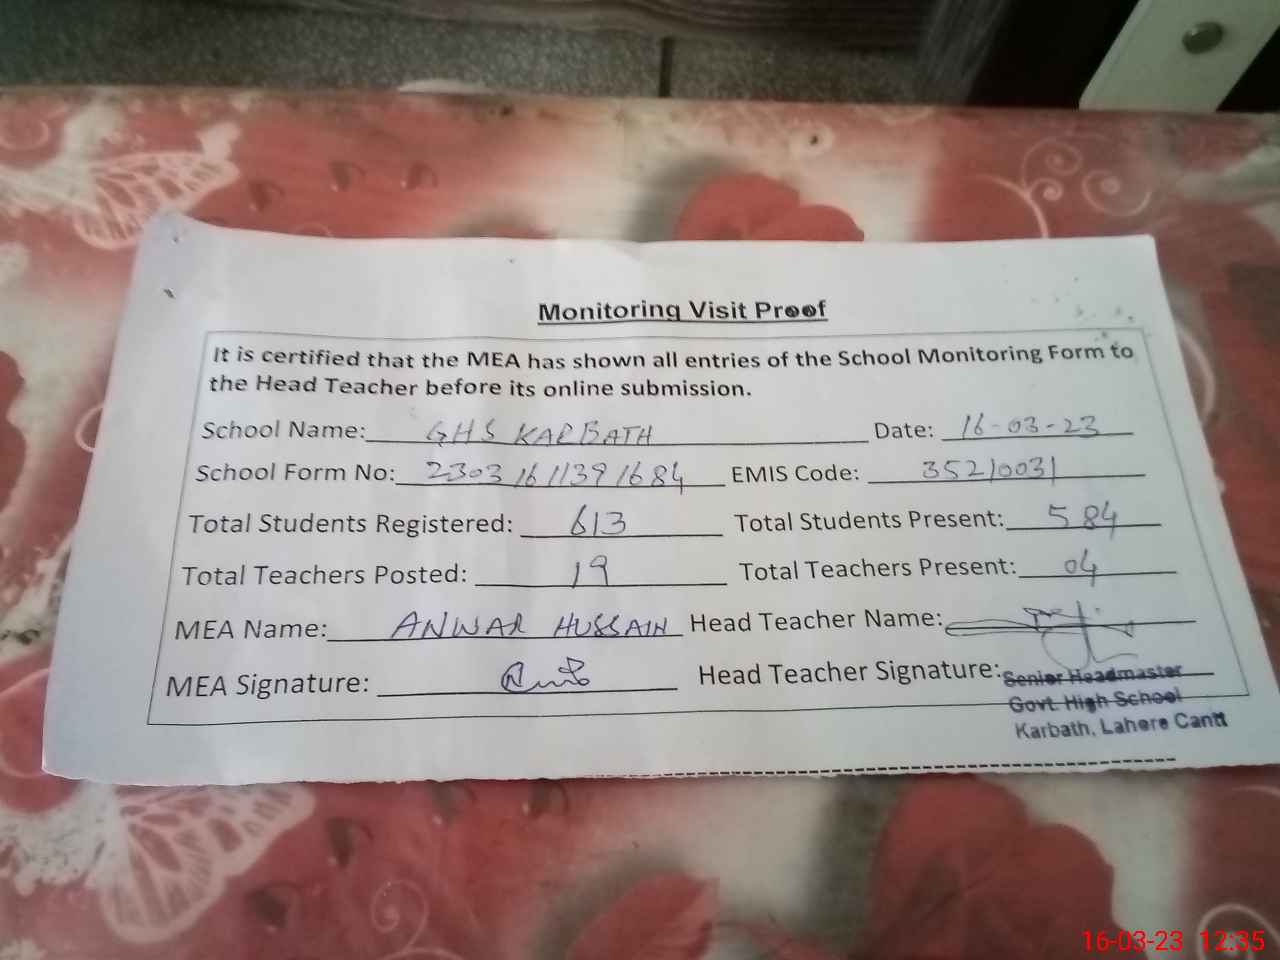 Monitoring Visit Proof
It is certified that the MEA has shown all entries of the School Monitoring Form to
the Head Teacher before its online submission.
School Name: GHS KARBATH Date: 16-03-23
School Form No: 23031611391684 EMIS Code: 35210031
Total Students Registered: 613 Total Students Present: 584
Total Teachers Posted: 19 Total Teachers Present: 04
MEA Name: ANWAR HUSSAIN Head Teacher Name:
MEA Signature: Head Teacher Signature:
Senior Headmaster
Govt. High School
Karbath, Lahore Cantt
16-03-23 12:35